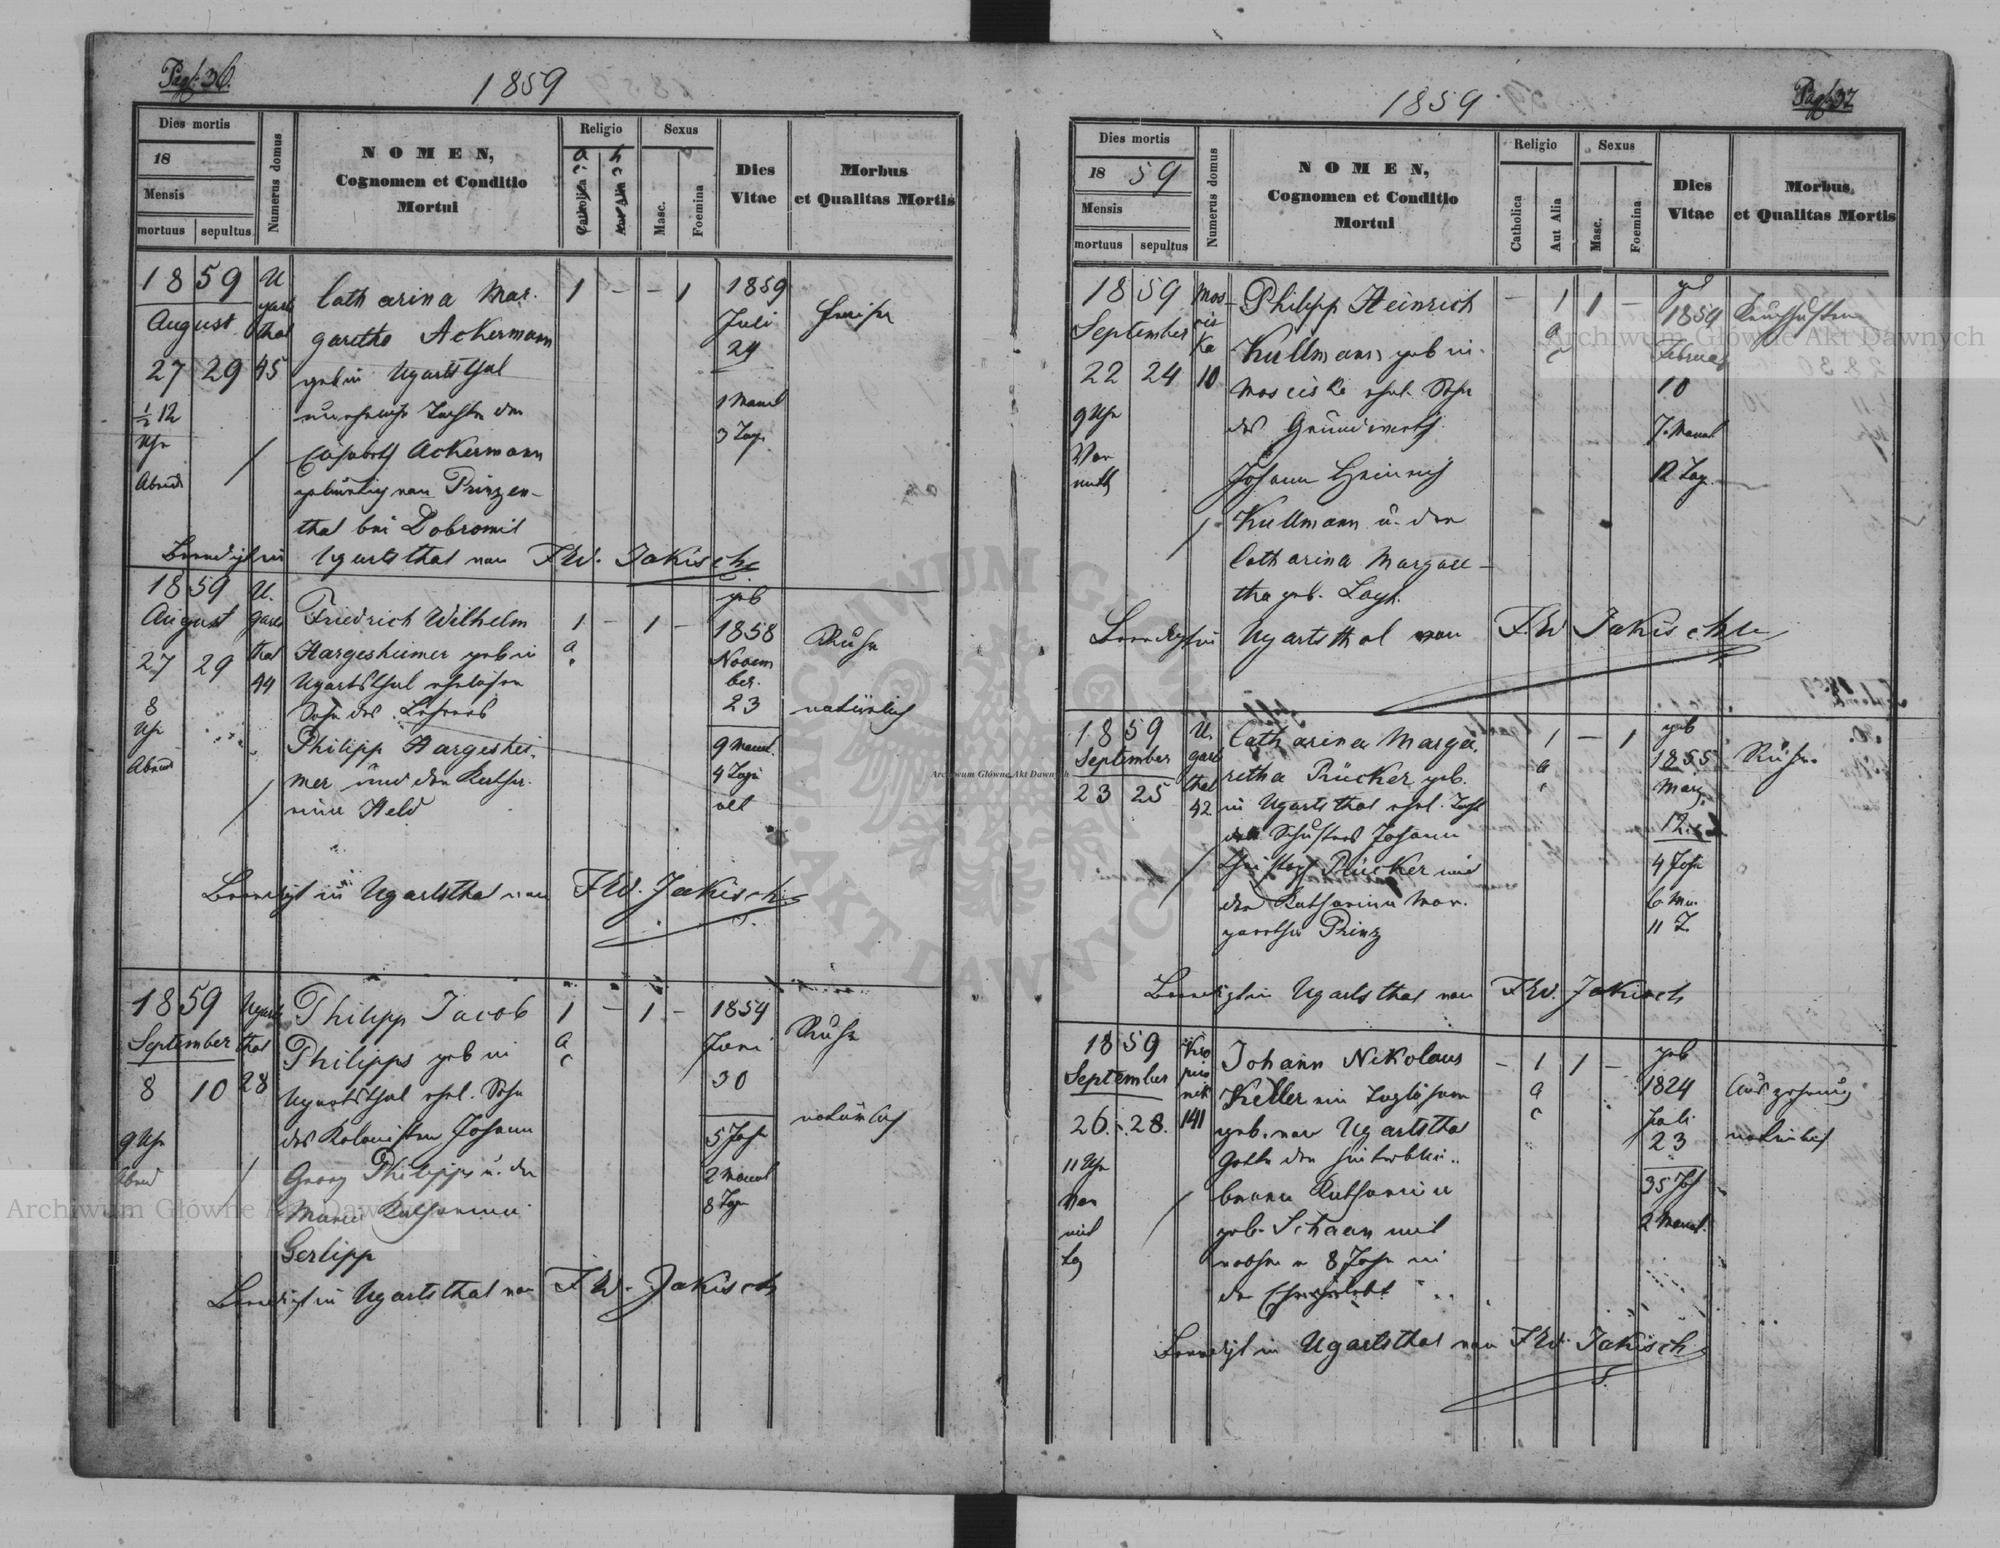 Pag: 36.
1859
Dies mortis
18
Mensis
mortuus
sepultus
Numerus domus
NOMEN,
Cognomen et Conditio
Mortui
Religio
Catholica
Aut Alia
Sexus
Masc.
Foemina
Dies
Vitae
Morbus
et Qualitas Mortis
1859
August
27 29
1/2 12
Uhr
Abends
U
garts
thal
45
Catharina Mar-
garetha Ackermann
geb in Ugartsthal
uneheliche Tochter der
Elisabeth Ackermann
gebürtig von Prinzen-
thal bei Dobromil
1 - - 1
1859
Juli
24
1 Monat
3 Tag.
Beerdigt in Ugartsthal von FW. Jakisch
1859
August
27 29
8
Uhr
Abends
U.
garts
thal
44
Friedrich Wilhelm
Hargesheimer geb in
Ugartsthal
Sohn des Lehrers
Philipp Hargeshei-
mer und der Katha-
rina Held
1 - 1 -
a
geb
1858
Novem
ber.
23
9 Monat.
4 Tage
alt
Ruhr
natürlich
Beerdigt in Ugartsthal von FW. Jakisch
1859
September
8 10
9 Uhr
Abend
Ugarts
thal
28
Philipp Jacob
Philipps geb in
Ugartsthal ehel. Sohn
des Kolonisten Johann
Georg Philipps u. der
Maria Katharina
Gerlipp
1 - 1 -
a
c
1854
Juni
30
5 Jahr
2 Monat
8 Tage
Ruhr
natürlich
Beerdigt in Ugartsthal von FW. Jakisch
Pag: 37
1859
Dies mortis
1859
Mensis
mortuus
sepultus
Numerus domus
NOMEN,
Cognomen et Conditio
Mortui
Religio
Catholica
Aut Alia
Sexus
Masc.
Foemina
Dies
Vitae
Morbus
et Qualitas Mortis
1859
September
22 24
9 Uhr
Vor
mittg
Mos
cis
Ka
10
Philipp Heinrich
Kullmann geb in
Mosciska ehel. Sohn
des Grundwirth
Johann Heinrich
Kullmann u. der
Catharina Marga-
tha geb.
- 1 1 -
a
c
1859
Februar
10
7 Monat
12 Tag
Keuchhusten
Beerdigt in Ugartsthal von F.W Jakisch
1859
September
23 25
U.
garts
thal
42
Catharina Marga-
retha Rücker geb.
in Ugartsthal ehel. Tocht
des Schusters Johann
Christoph Rücker und
der Katharina Mar-
garetha Prinz
1 - 1
a
c
geb
1855
März
12.
4 Jahr
6 Mon.
11 T.
Ruhr
Beerdigt in Ugartsthal von FW. Jakisch
1859
September
26. 28.
11 Uhr
Vor
mit
tg
Kro
piw
nik
141
Johann Nikolaus
Keller ein Taglöhner
geb. von Ugartsthal
Gatte der hinterblie-
benen Katharina
geb. Schaan mit
welcher er 8 Jahr in
der Ehe gelebt
- 1 1 -
a
c
geb
1824
Juli
23
35 Jah
2 Monat.
Auszehrung
natürlich
Beerdigt in Ugartsthal von FW. Jakisch
Archiwum Główne Akt Dawnych
Archiwum Główne Akt Dawnych
Archiwum Główne Akt Dawnych
ARCHIWUM GŁÓWNE AKT DAWNYCH